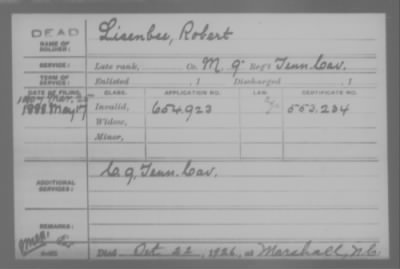 DEAD
NAME OF SOLDIER: Lisenbee, Robert
SERVICE: Late rank, Co. M. 9 Reg't Tenn. Cav.
TERM OF SERVICE: Enlisted , 1 Discharged , 1
DATE OF FILING. CLASS. APPLICATION NO. LAW. CERTIFICATE NO.
1888 May 17 Invalid, 654.923 553.234
Widow,
Minor,
ADDITIONAL SERVICES: C. 9. Tenn. Cav.
REMARKS:
Died Oct 22, 1926, at Marshall, N.C.